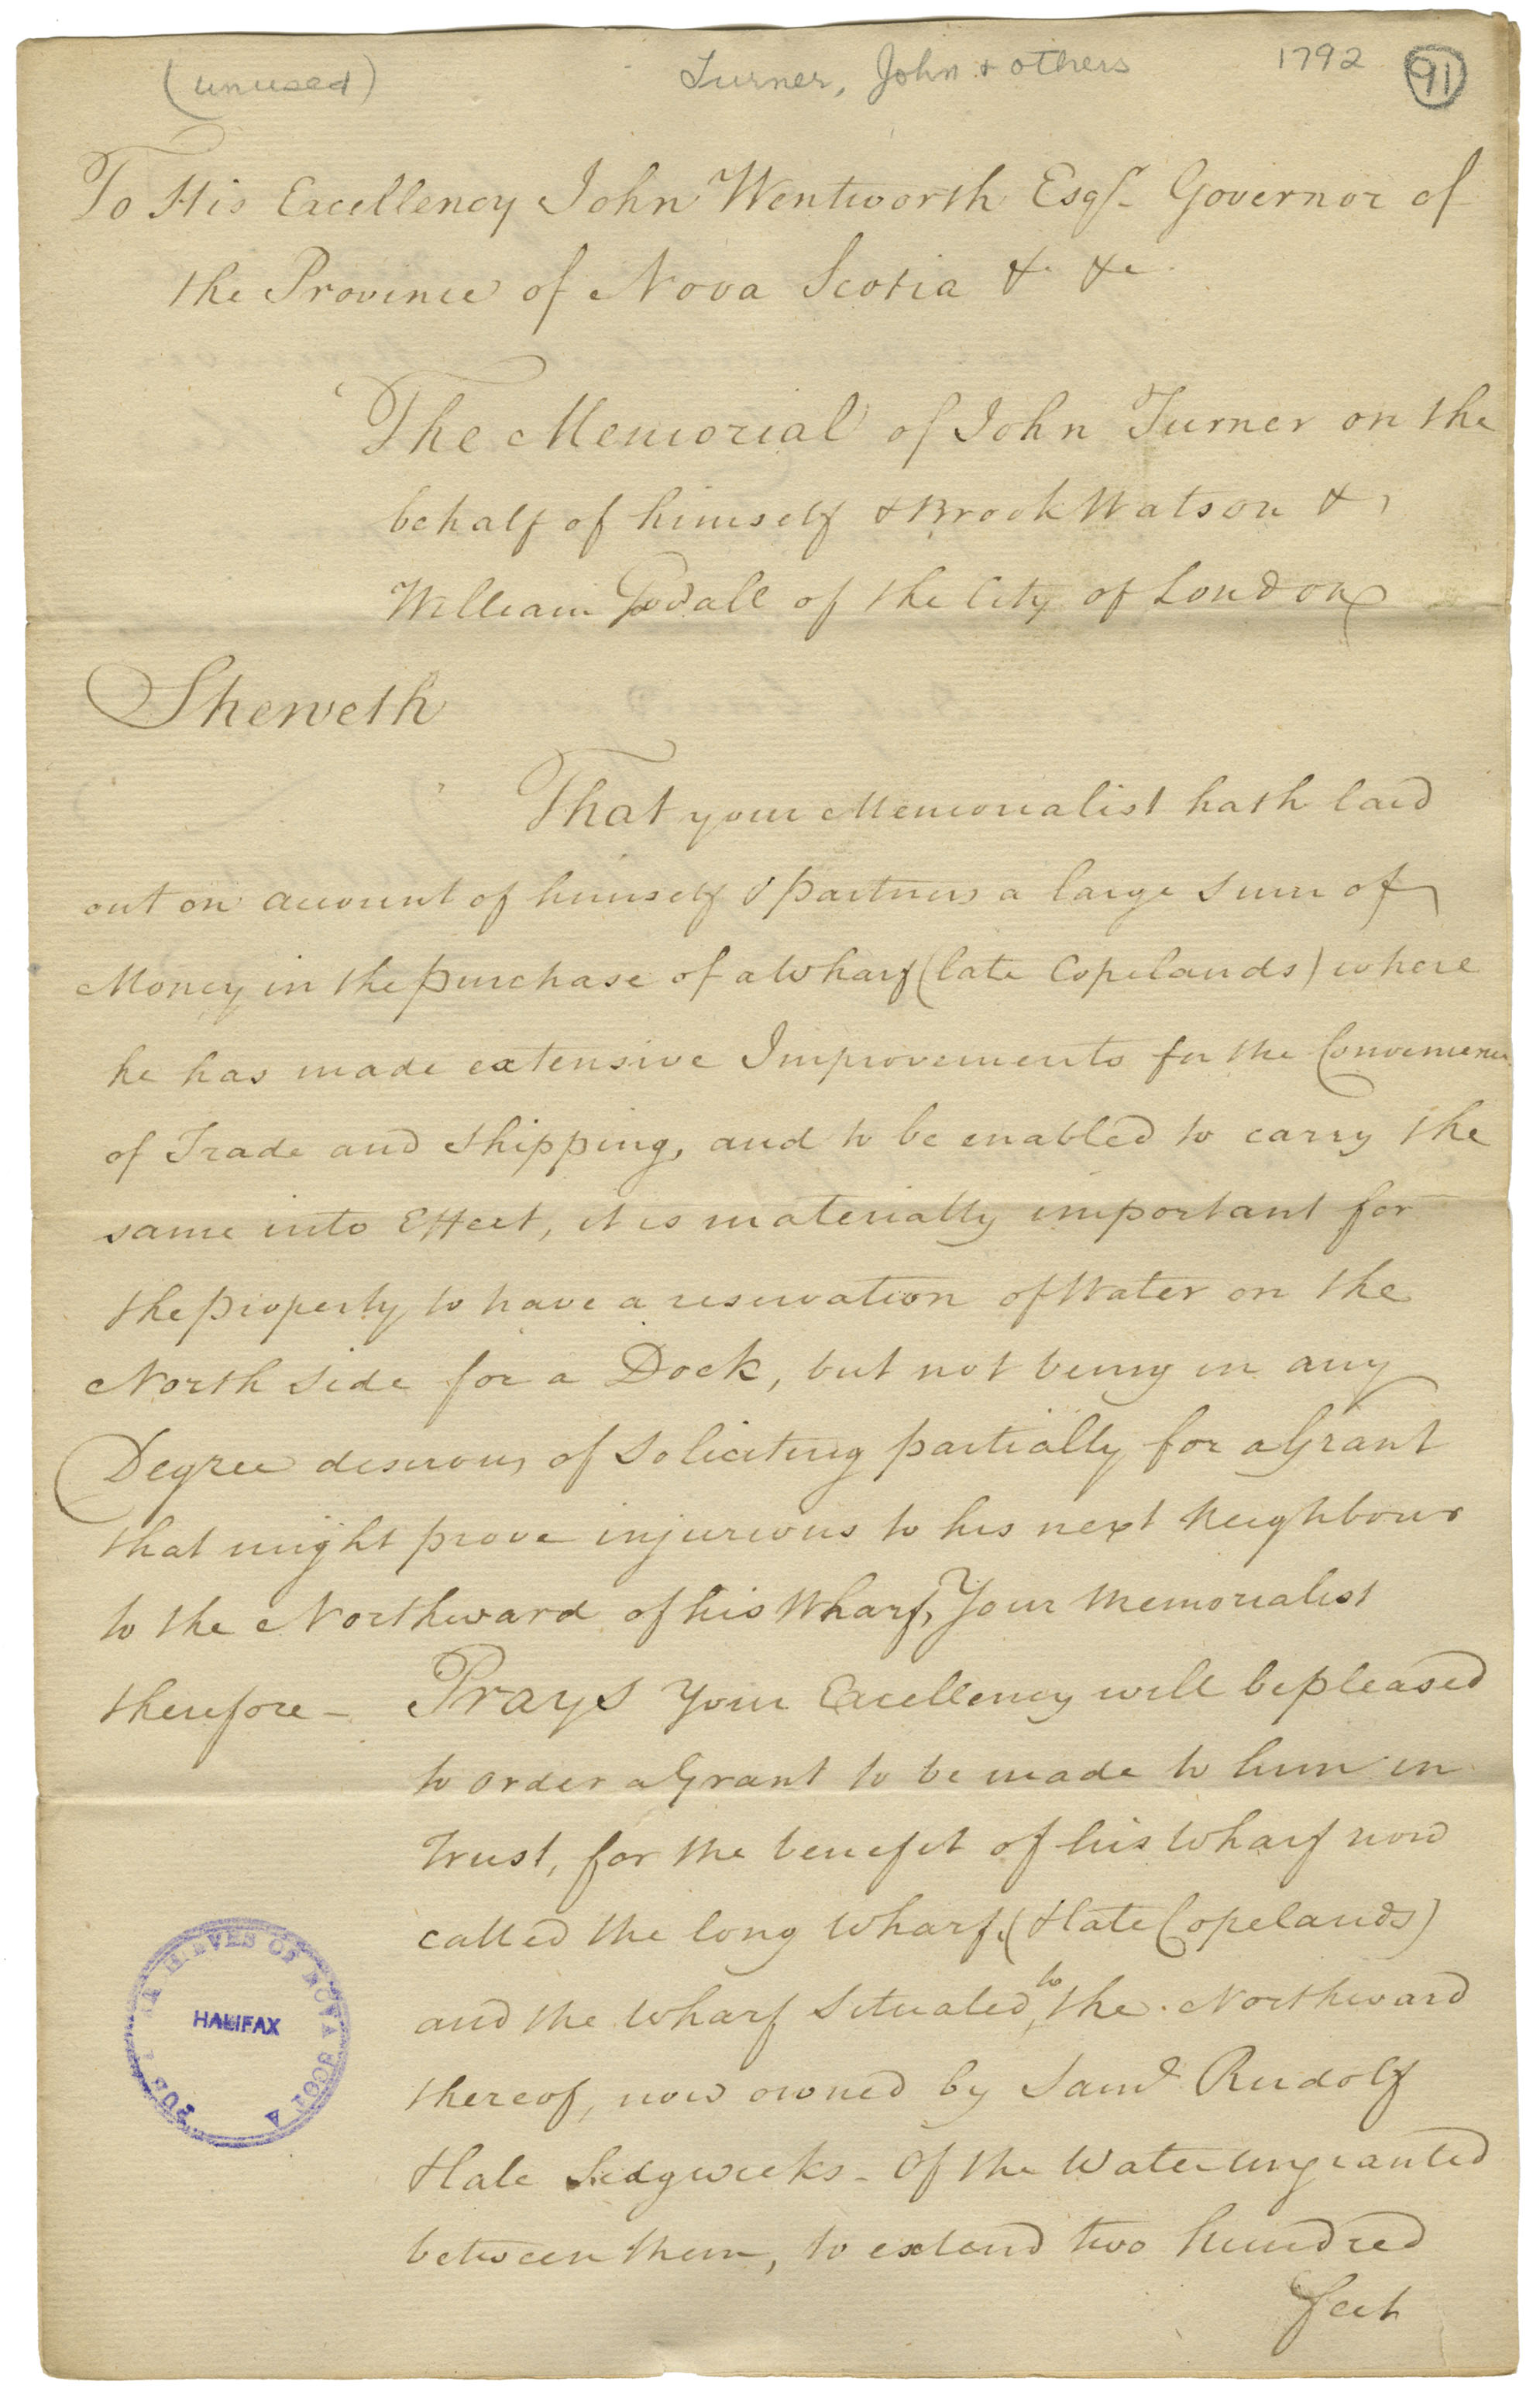 (unused) Turner, John & others 1792 91
To His Excellency John Wentworth Esqr. Governor of
the Province of Nova Scotia &. &c.
The Memorial of John Turner on the
behalf of himself & Brook Watson &
William Goodall of the City of London
Sheweth
That your Memorialist hath laid
out on account of himself & partners a large Sum of
Money in the purchase of a Wharf (late Copelands) where
he has made extensive Improvements for the Convenience
of Trade and Shipping, and to be enabled to carry the
same into Effect, it is materially important for
the property to have a reservation of Water on the
North side for a Dock, but not being in any
Degree desirous of Soliciting partially for a Grant
that might prove injurious to his next Neighbour
to the Northward of his Wharf, Your Memorialist
therefore - Prays Your Excellency will be pleased
to order a Grant to be made to him in
Trust, for the benefit of his Wharf now
called the long Wharf, (late Copelands)
and the Wharf Situated to the Northward
thereof, now owned by Saml. Rudolf
Hale Sedgweeks - Of the Water ungranted
between them, to extend two hundred
feet
PUBLIC ARCHIVES OF NOVA SCOTIA
HALIFAX